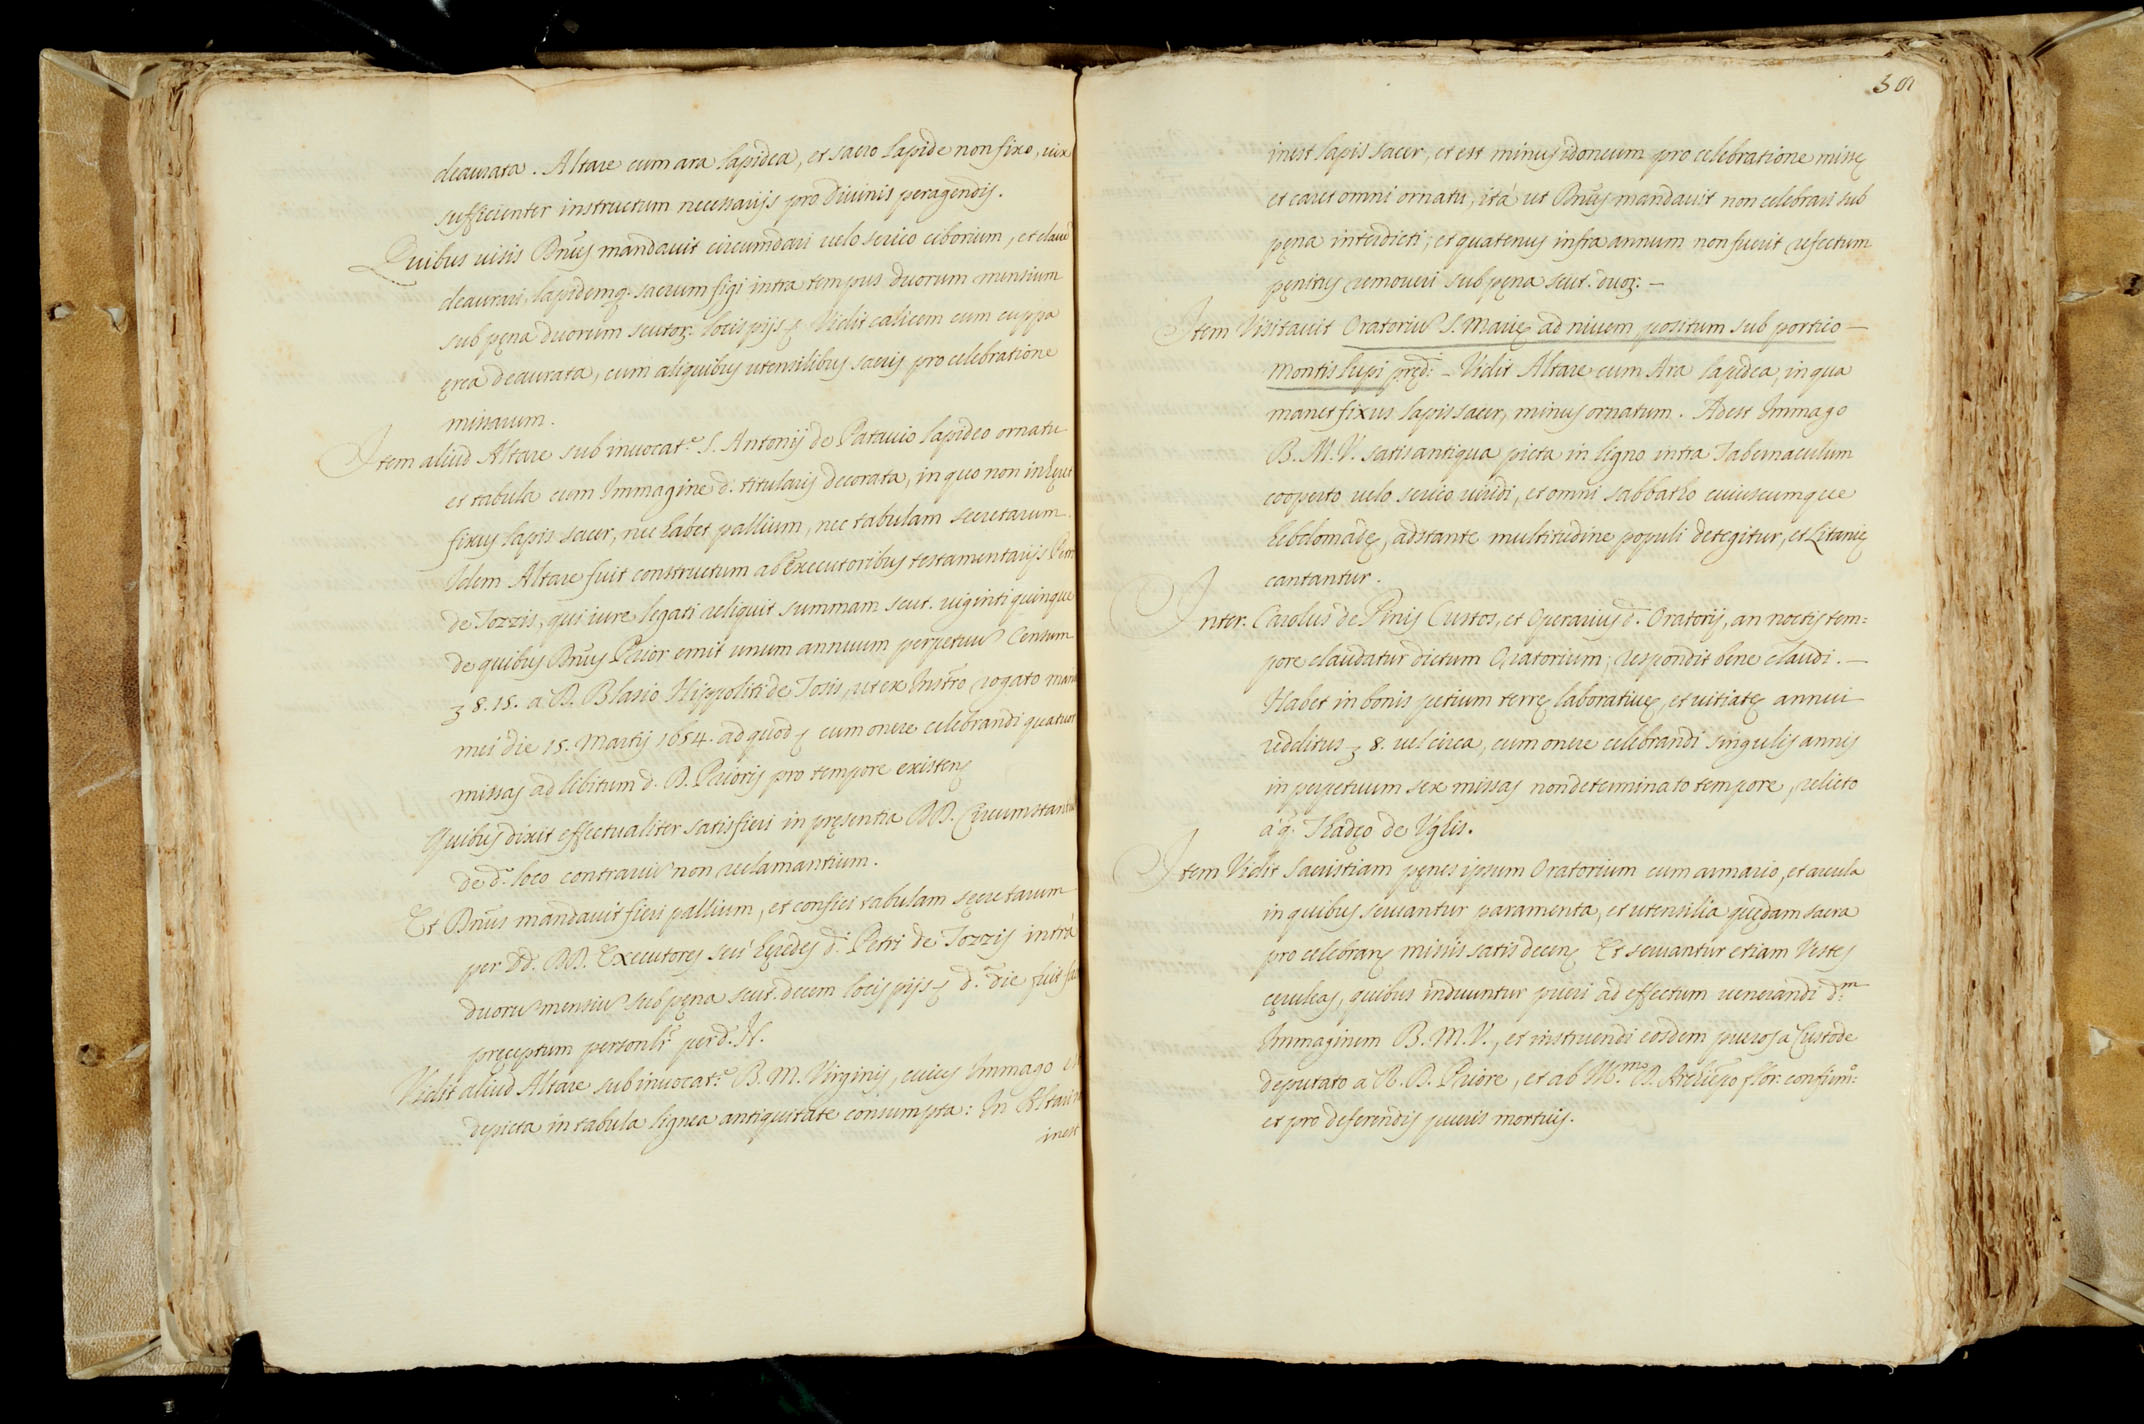 deaurata. Altare cum ara lapidea, et sacro lapide non fixo, vix
sufficienter instructum necessarijs pro divinis peragendis.
Quibus visis Dn̄us mandavit circumdari velo serico ciborium, et clavē
deaurari, lapidemq; sacrum figi intra tempus duorum mensium
sub pęna duorum scutor: locis pijs Vidit calicem cum cuppa
ęrea deaurata, cum aliquibus utensilibus sacris pro celebratione
missarum.
Item aliud Altare sub invocat.e S. Antonij de Patavio lapideo ornatu
et tabula cum Immagine d. titularis decorata, in quo non inhęret
fixus lapis sacer, nec habet pallium, nec tabulam secretarum.
Idem Altare fuit constructum ab Executoribus testamentarijs Petri
de Tozzis, qui iure legati reliquit summam scut. viginti quinque
de quibus Dn̄us Prior emit unum annuum perpetuū Censum
8.15. a D. Blasio Hippoliti de Tosis, ut ex Instr̄o rogato manu
mei die 15. Martij 1654. ad quod cum onere celebrandi quatuor
missas ad libitum d. D. Prioris pro tempore existen
Quibus dixit effectualiter satisfieri in pręsentia DD. Circumstantiū
de d.o loco contrariū non reclamantium.
Et Dn̄us mandavit fieri pallium, et confici tabulam sęcretarum
per Dd. DD. Executores seù hęredes d.i Petri de Tozzis intrà
duorū mensiū sub pęna scut. decem locis pijs d.a die fuit
pręceptum personlr̄ per d. N.
Vidit aliud Altare sub invocat.e B. M. Virginis, cuius Immago
depicta in tabula lignea antiquitate consumpta: In Altari
inest
301
inest lapis sacer, et est minus idoneum pro celebratione missę
et caret omni ornatu, ità ut Dn̄us mandavit non celebrari sub
pęna interdicti; et quatenus infra annum non fuerit refectum
pęnitus removeri sub pęna scut. duor: –
Item Visitavit Oratoriū S. Marię ad nivem, positum sub portico –
Montis lupi pręd.i – Vidit Altare cum Ara lapidea, in qua
manet fixus lapis sacer, minus ornatum. Adest Immago
B. M. V. satis antiqua picta in ligno intra Tabernaculum
cooperto velo serico viridi, et omni sabbatho cuiuscumque
hebdomadę, adstante multitudine populi detegitur, et Litanię
cantantur.
Inter. Carolus de Pinis Custos, et Operarius d. Oratorij, an noctis tem=
pore claudatur dictum Oratorium, respondit bene claudi. –
Habet in bonis petium terrę laborativę, et vitiatę annui –
redditus 8. vel circa, cum onere celebrandi singulis annis
in perpetuum sex missas non determinato tempore, relicto
à q: Thadęo de Uglis.
Item Vidit Sacristiam pęnes ipsum Oratorium cum armario, et arcula
in quibus servantur paramenta, et utensilia quędam sacra
pro celebran missis satis decen Et servantur etiam Vestes
cęruleas, quibus induuntur pueri ad effectum venerandi d.m
Immaginem B. M. V., et instruendi eosdem pueros à Custode
deputato a R. D. Priore, et ab Ill.mo D. Archiep̄o flor. confirm.o:
et pro deferendis pueris mortuis.